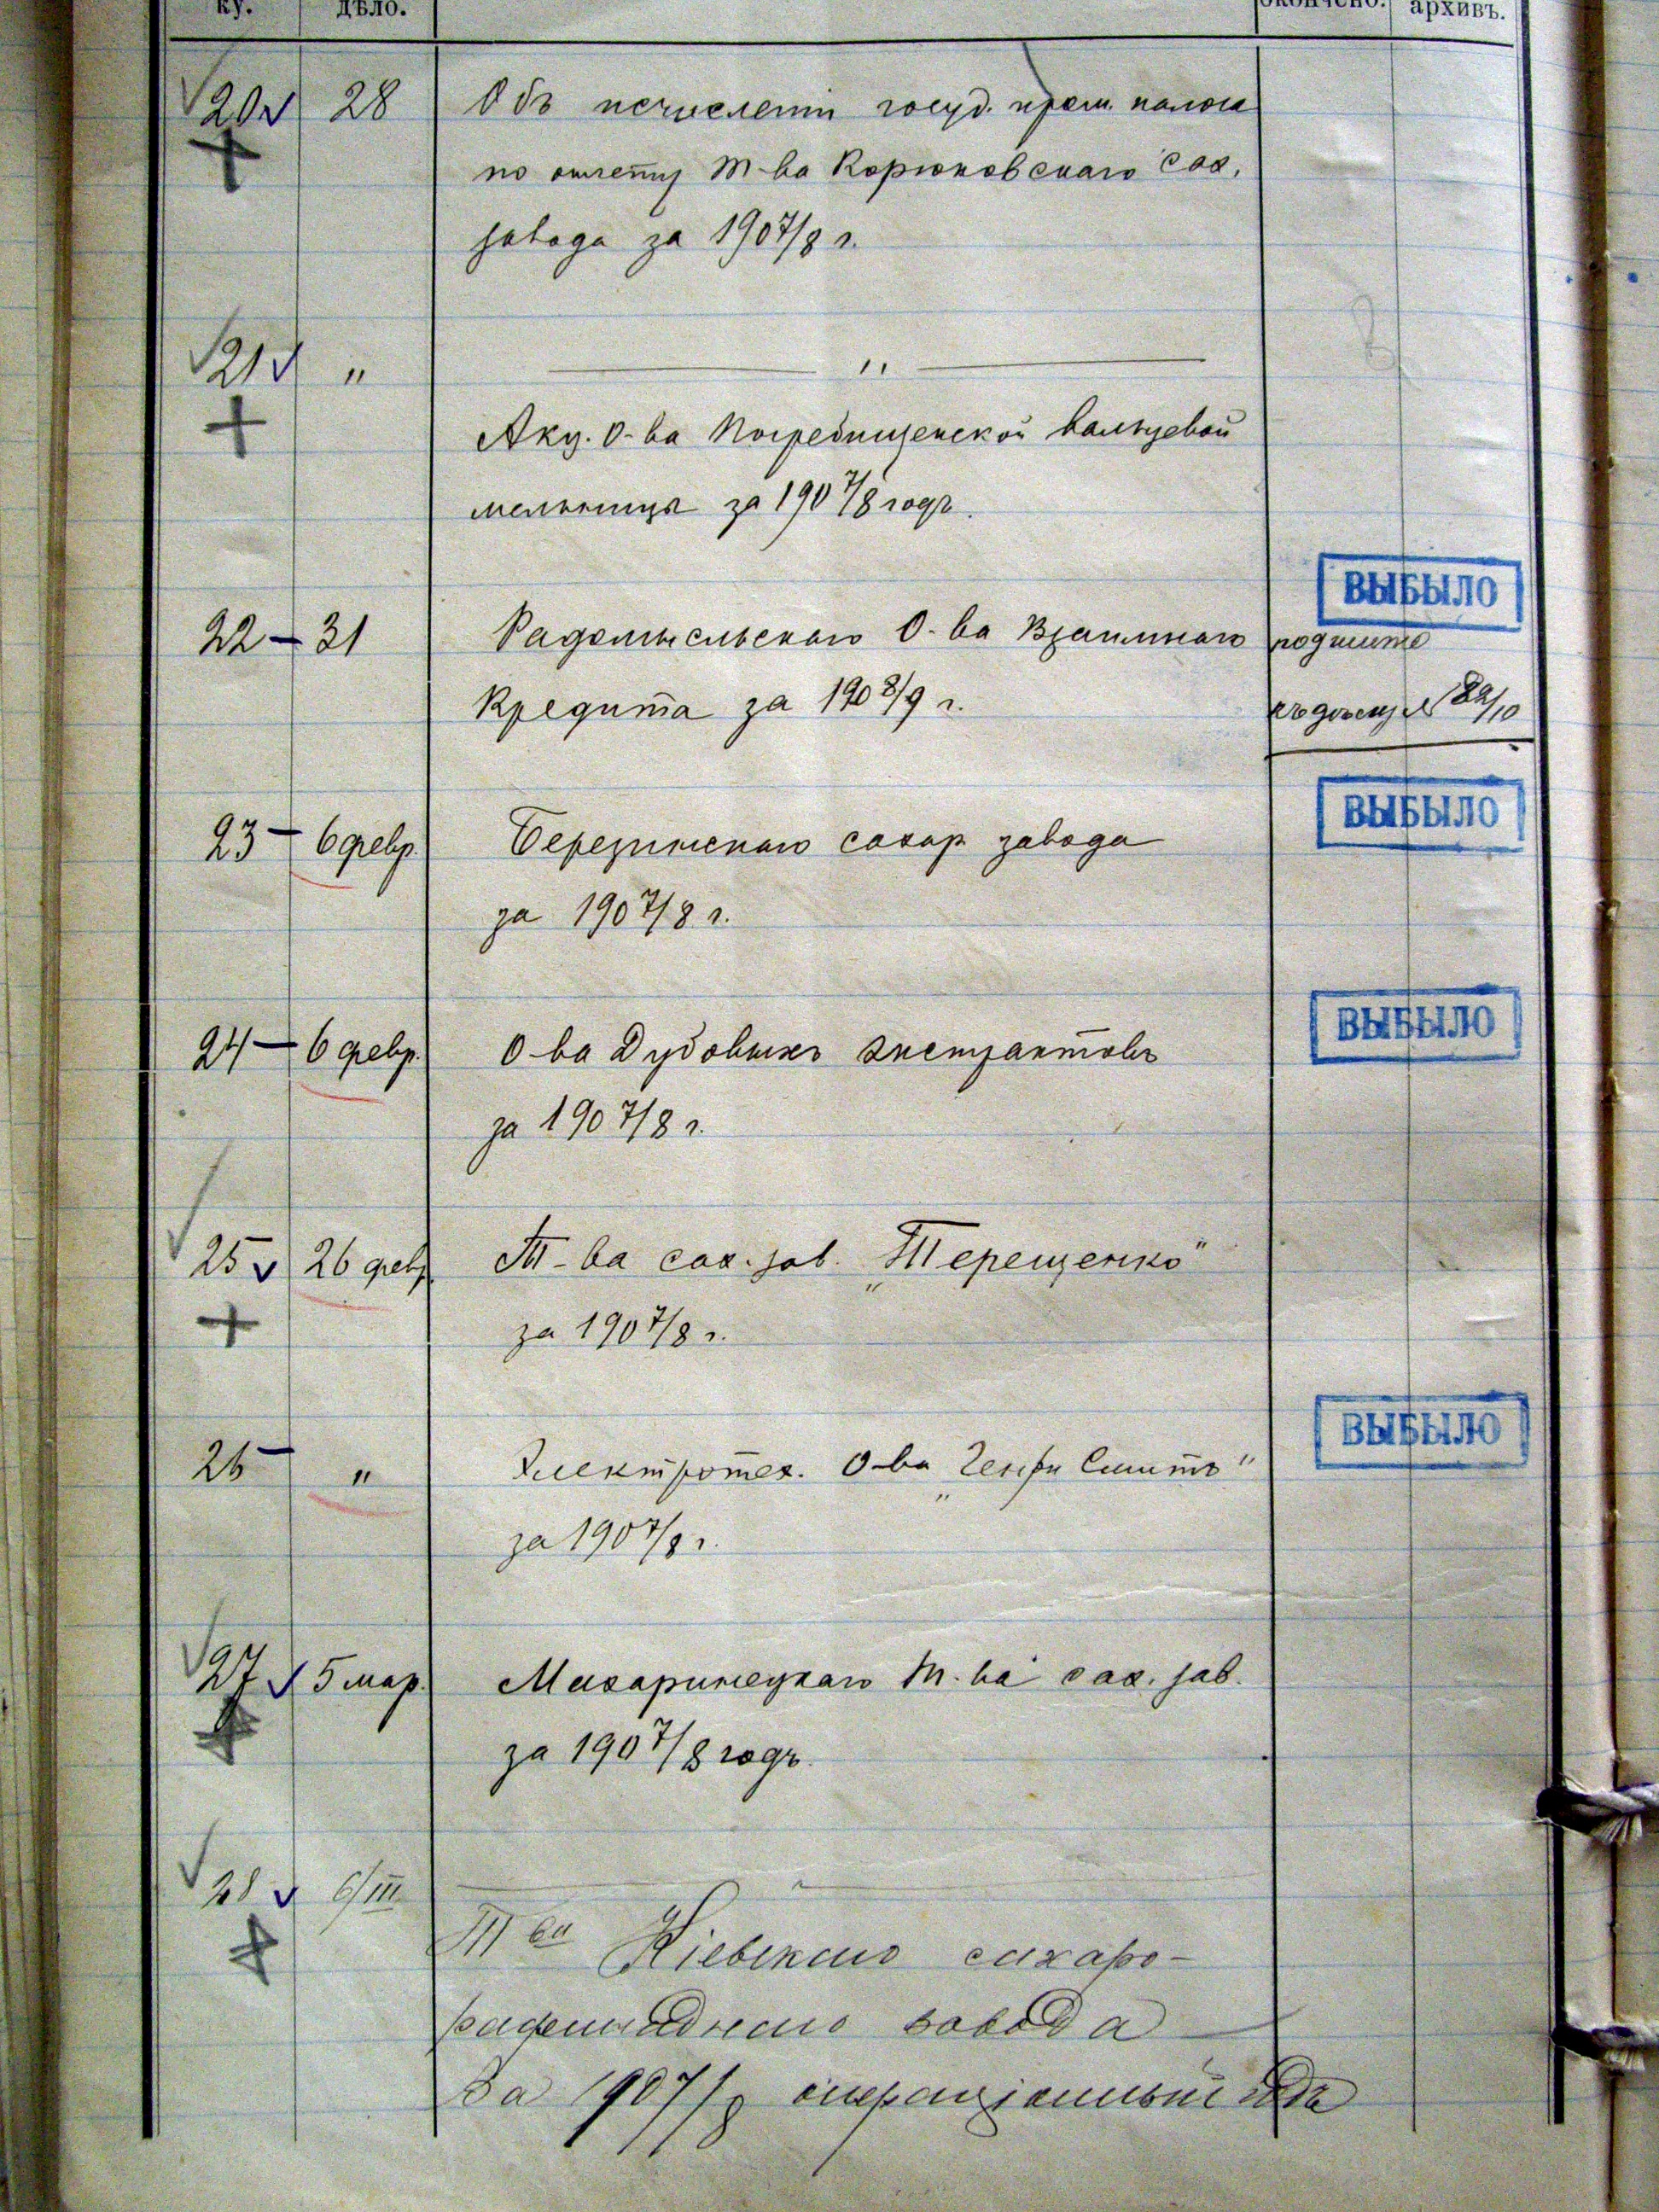 ку. дѣло. окончено. архивъ.
20 28 Объ исчисленіи госуд. пром. налога
по отчету Т-ва Корюковскаго сах.
завода за 1907/8 г.
21 " — " —
Акц. О-ва Погребищенской вальцевой
мельницы за 1907/8 годъ.
ВЫБЫЛО
22 — 31 Радомысльскаго О-ва Взаимнаго подшито
Кредита за 1908/9 г. къ дѣлу № 82/10
23 — 6 февр. Березинскаго сахар. завода ВЫБЫЛО
за 1907/8 г.
24 — 6 февр. О-ва Дубовыхъ экстрактовъ ВЫБЫЛО
за 1907/8 г.
25 26 февр. Т-ва сах. зав. „Терещенко"
за 1907/8 г.
26 — " Электротех. О-ва „Генри Смитъ" ВЫБЫЛО
за 1907/8 г.
27 5 мар. Махаринецкаго Т-ва сах. зав.
за 1907/8 годъ.
28 6/III
Т-ва Кіевскаго сахаро-
рафинаднаго завода
за 1907/8 операціонный годъ